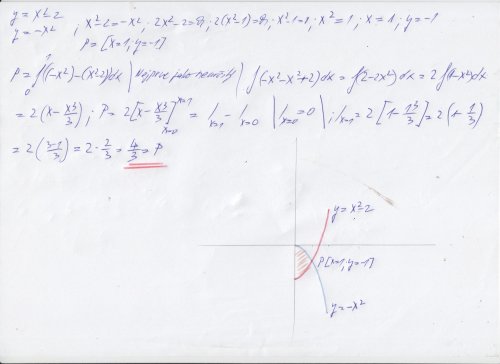 y = x²-2
y = -x² ; x²-2 = -x² ; 2x²-2 = 0 ; 2(x²-1) = 0 ; x²-1 = 0 ; x² = 1 ; x = 1 ; y = -1
P = [x=1; y=-1]
P = ∫₀¹((-x²)-(x²-2)dx | Najprve jako neurčitý | ∫(-x²-x²+2)dx = ∫(2-2x²)dx = 2∫(1-x²)dx
= 2(x-x³/3) ; P = 2[x-x³/3]ₓ₌₀ˣ⁼¹ = /ₓ₌₁ - /ₓ₌₀ | /ₓ₌₀ = 0 | ; /ₓ₌₁ = 2[1-1³/3] = 2(1-1/3)
= 2(3-1/3) = 2·2/3 = 4/3 = P
y = x²-2
P[x=1; y=-1]
y = -x²